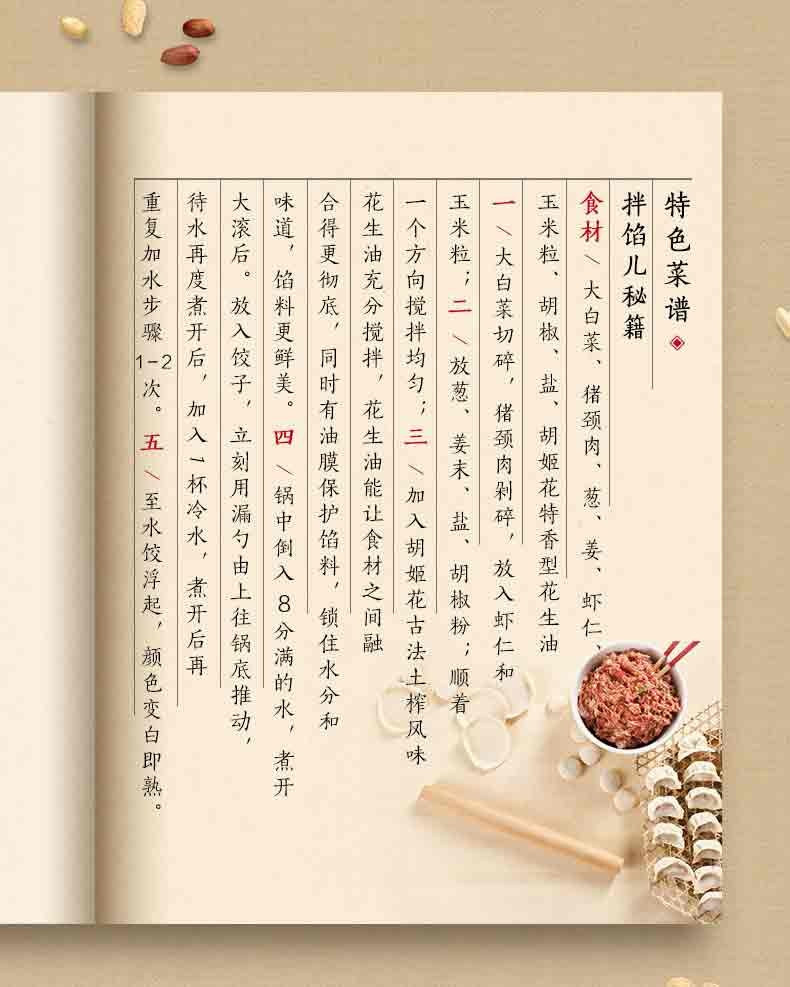 特色菜谱
拌馅儿秘籍
食材\大白菜、猪颈肉、葱、姜、虾仁、
玉米粒、胡椒、盐、胡姬花特香型花生油
一\大白菜切碎，猪颈肉剁碎，放入虾仁和
玉米粒；二\放葱、姜末、盐、胡椒粉；顺着
一个方向搅拌均匀；三\加入胡姬花古法土榨风味
花生油充分搅拌，花生油能让食材之间融
合得更彻底，同时有油膜保护馅料，锁住水分和
味道，馅料更鲜美。四\锅中倒入8分满的水，煮开
大滚后。放入饺子，立刻用漏勺由上往锅底推动，
待水再度煮开后，加入1杯冷水，煮开后再
重复加水步骤1-2次。五\至水饺浮起，颜色变白即熟。